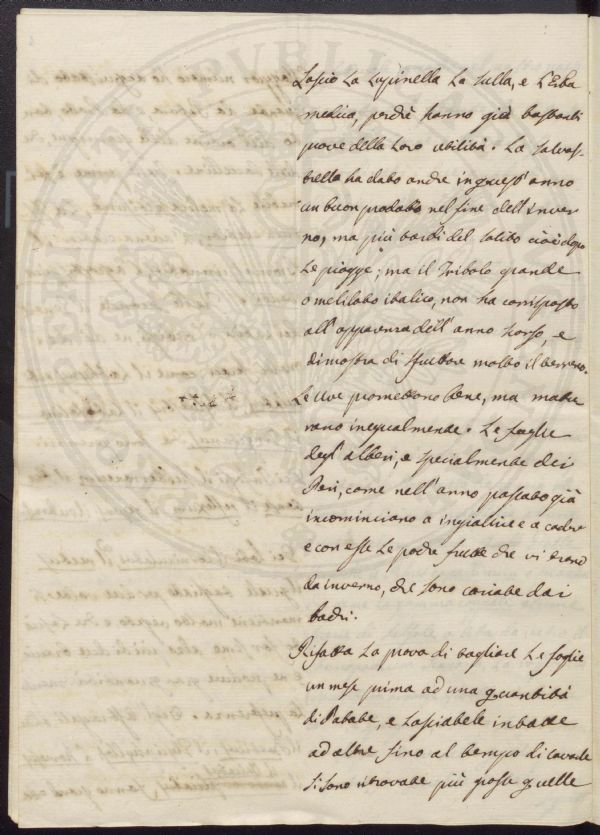 Lascio La Lupinella La Sulla, e L'Erba
medica, perchè hanno già bastanti
prove della Loro utilità. La Salvas-
trella ha dato anche in quest'anno
un buon prodotto nel fine dell'inver
no, ma più tardi del solito cioè dopo
Le piogge; ma il Tribolo grande
o meliloto italico, non ha corrisposto
all'apparenza dell'anno scorso, e
dimostra di sfruttare molto il terreno.
Le Uve promettono bene, ma matu
rano inegualmente. Le foglie
degl'alberi, e specialmente dei
Peri, come nell'anno passato già
incominciano a ingiallire e a cadere
e con esse Le poche frutte che vi erano
da inverno, che sono cariate dai
bachi.
Rifatta La prova di tagliare Le foglie
un mese prima ad una quantità
di Patate, e Lasciatele intatte
ad altre fino al tempo di cavarle
si sono ritrovate più grosse quelle